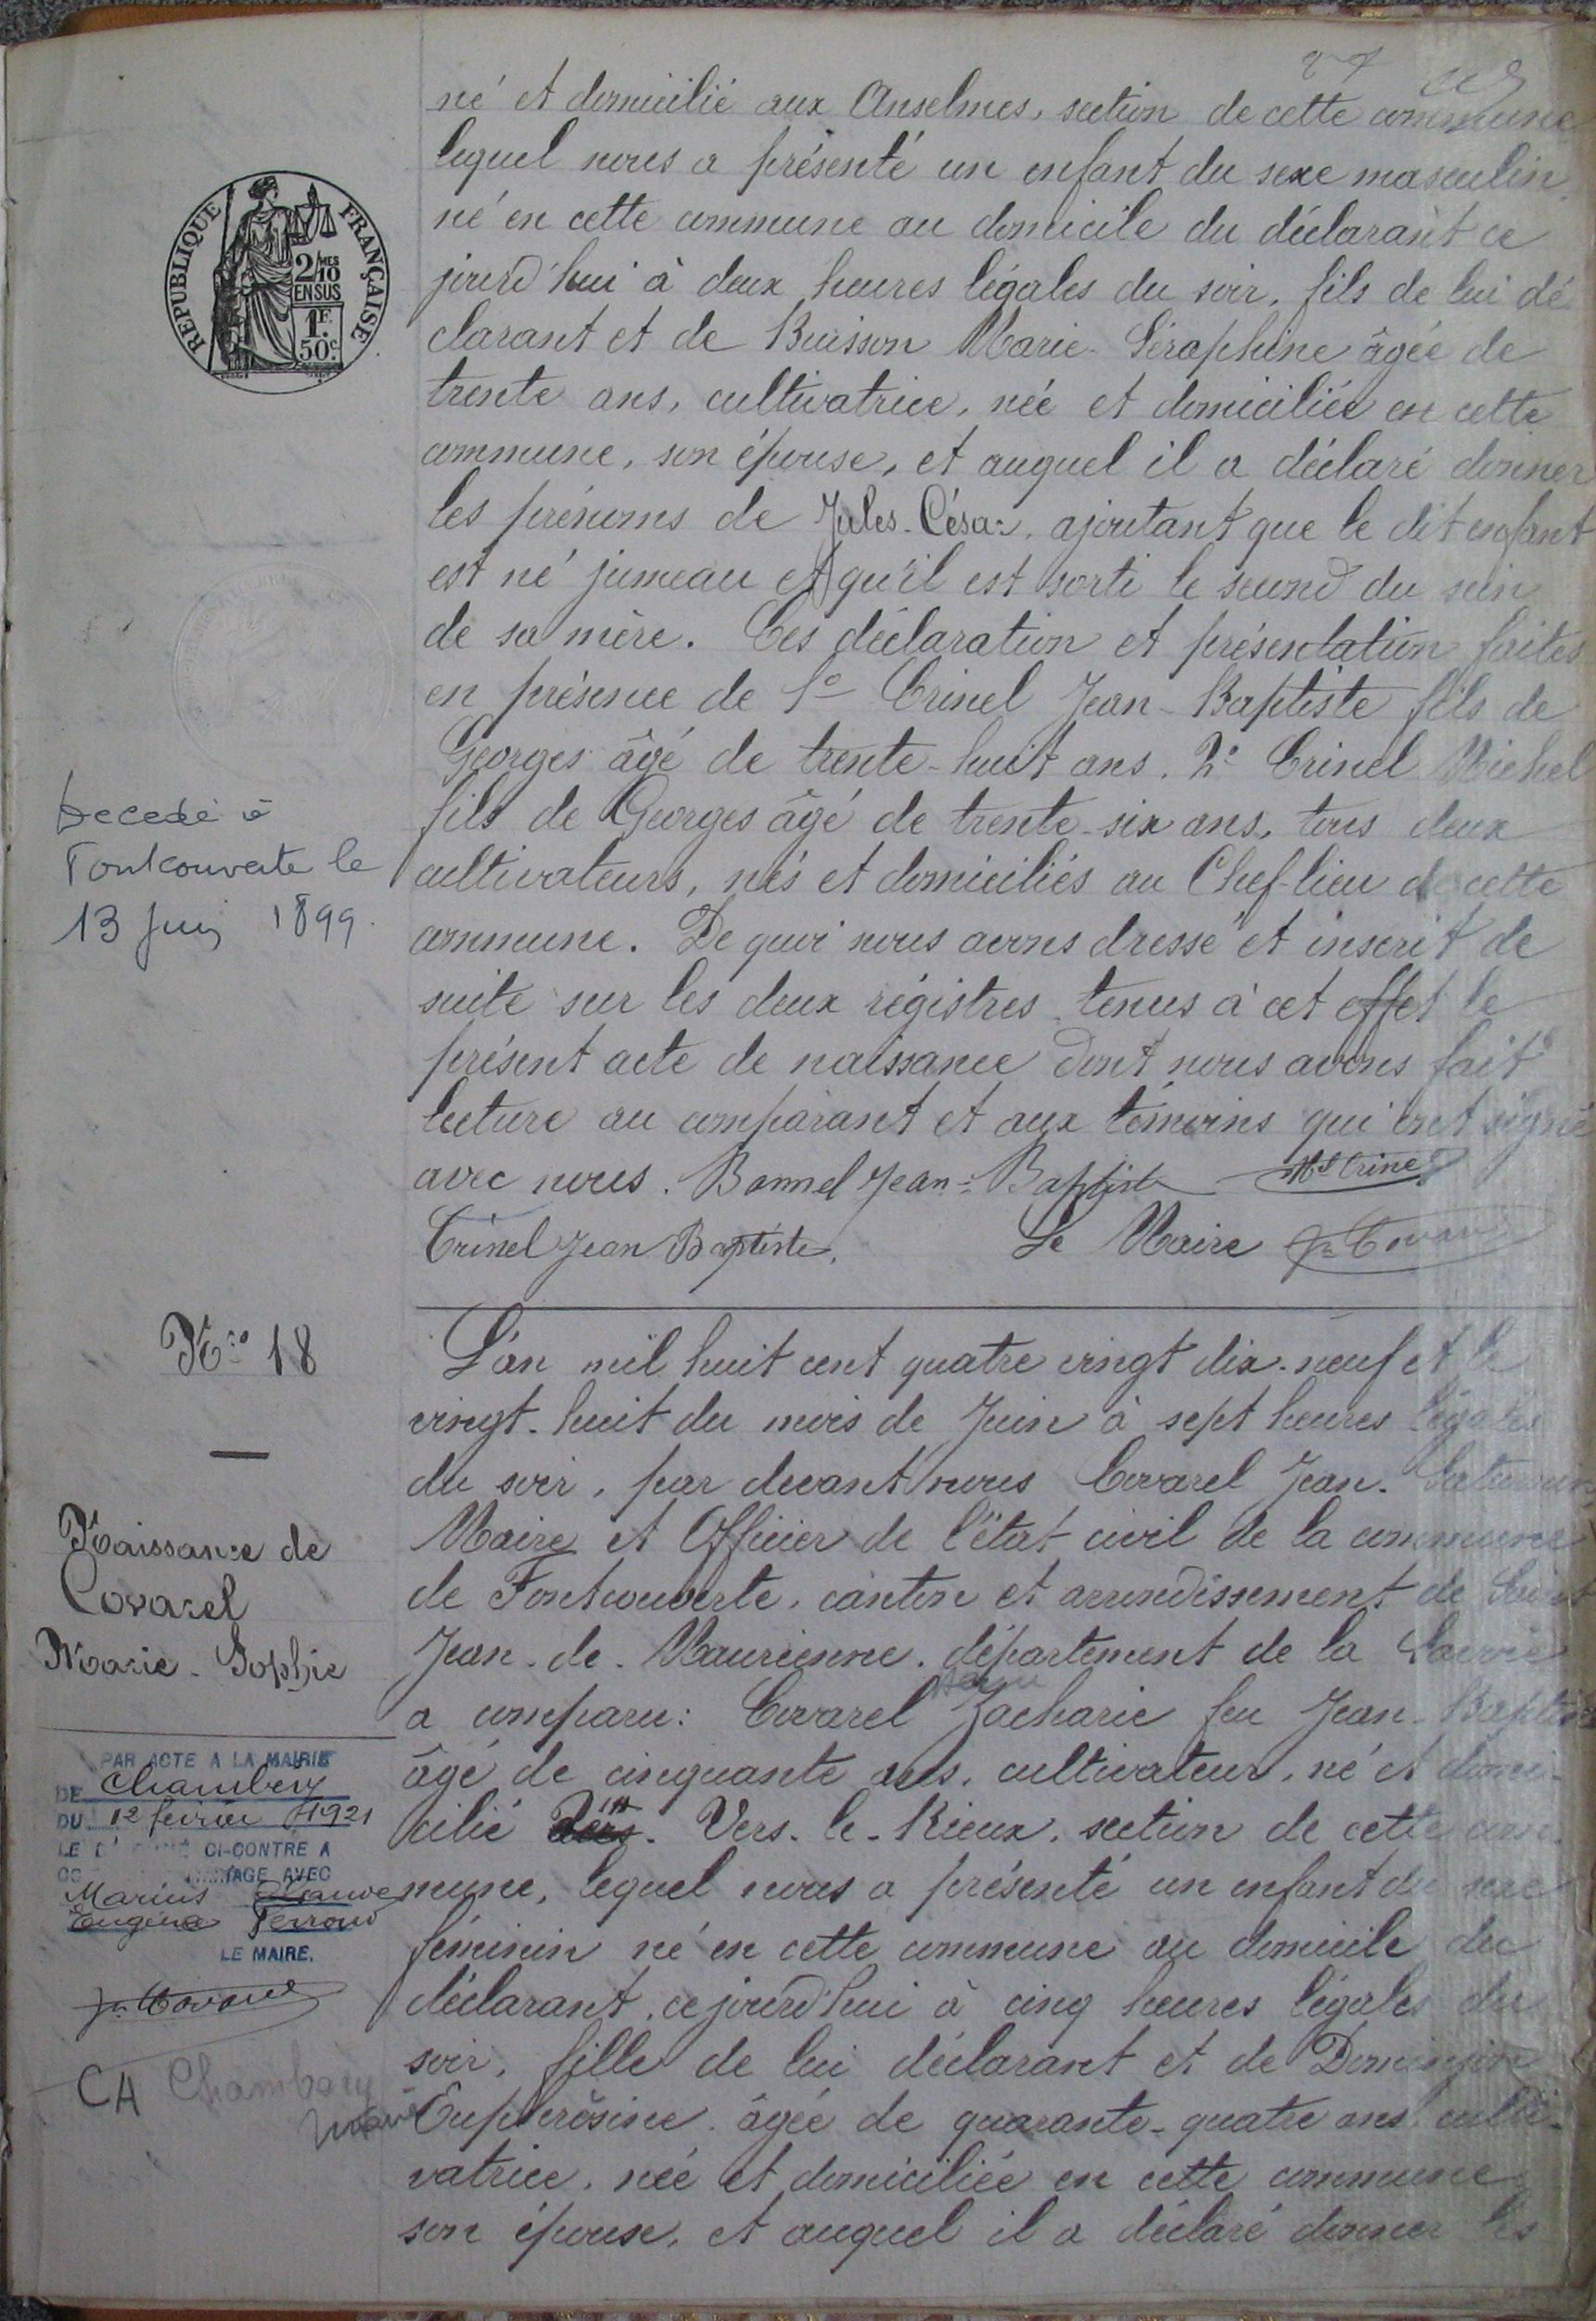 né et domicilié aux Anselmes, section de cette commune
lequel nous a présenté un enfant du sexe masculin
né en cette commune au domicile du déclarant ce
jourd'hui à deux heures légales du soir, fils de lui dé
clarant et de Buisson Marie-Séraphine âgée de
trente ans, cultivatrice, née et domiciliée en cette
commune, son épouse, et auquel il a déclaré donner
les prénoms de Jules-César, ajoutant que le dit enfant
est né jumeau et qu'il est sorti le second du sein
de sa mère. Ces déclaration et présentation faites
en présence de 1º Crinel Jean-Baptiste fils de
Georges âgé de trente-huit ans. 2º Crinel Michel
fils de Georges âgé de trente-six ans, tous deux
cultivateurs, nés et domiciliés au Chef-lieu de cette
commune. De quoi nous avons dressé et inscrit de
suite sur les deux régistres tenus à cet effet le
présent acte de naissance dont nous avons fait
lecture au comparant et aux témoins qui ont signé
avec nous. Bonnel Jean-Baptiste Mel Crinel
Crinel Jean Baptiste. Le Maire Jn Covarel
REPUBLIQUE FRANÇAISE
2/10 MES
EN SUS
1F.
50c.
Decedé à
Fontcouverte le
13 Juin 1899.
No 18
Naissance de
Covarel
Marie-Sophie
PAR ACTE A LA MAIRIE
DE Chambéry
DU 12 février 1921
LE CI-CONTRE A
MARIAGE AVEC
Marius Claude
Eugène Perroud
LE MAIRE.
Jn Covarel
CA Chambéry
L'an mil huit cent quatre vingt dix-neuf et le
vingt-huit du mois de Juin à sept heures légales
du soir, par devant nous Covarel Jean-Saturnin
Maire et Officier de l'état civil de la commune
de Fontcouverte, canton et arrondissement de Saint
Jean-de-Maurienne, département de la Savoie
a comparu: Covarel Zacharie feu Jean-Baptiste
âgé de cinquante ans, cultivateur, né et domi-
cilié Vers-le-Rieux, section de cette com-
mune, lequel nous a présenté un enfant du sexe
féminin né en cette commune au domicile du
déclarant, ce jourd'hui à cinq heures légales du
soir, fille de lui déclarant et de Domenjon
Euphrosine âgée de quarante-quatre ans culti-
vatrice, née et domiciliée en cette commune
son épouse, et auquel il a déclaré donner les